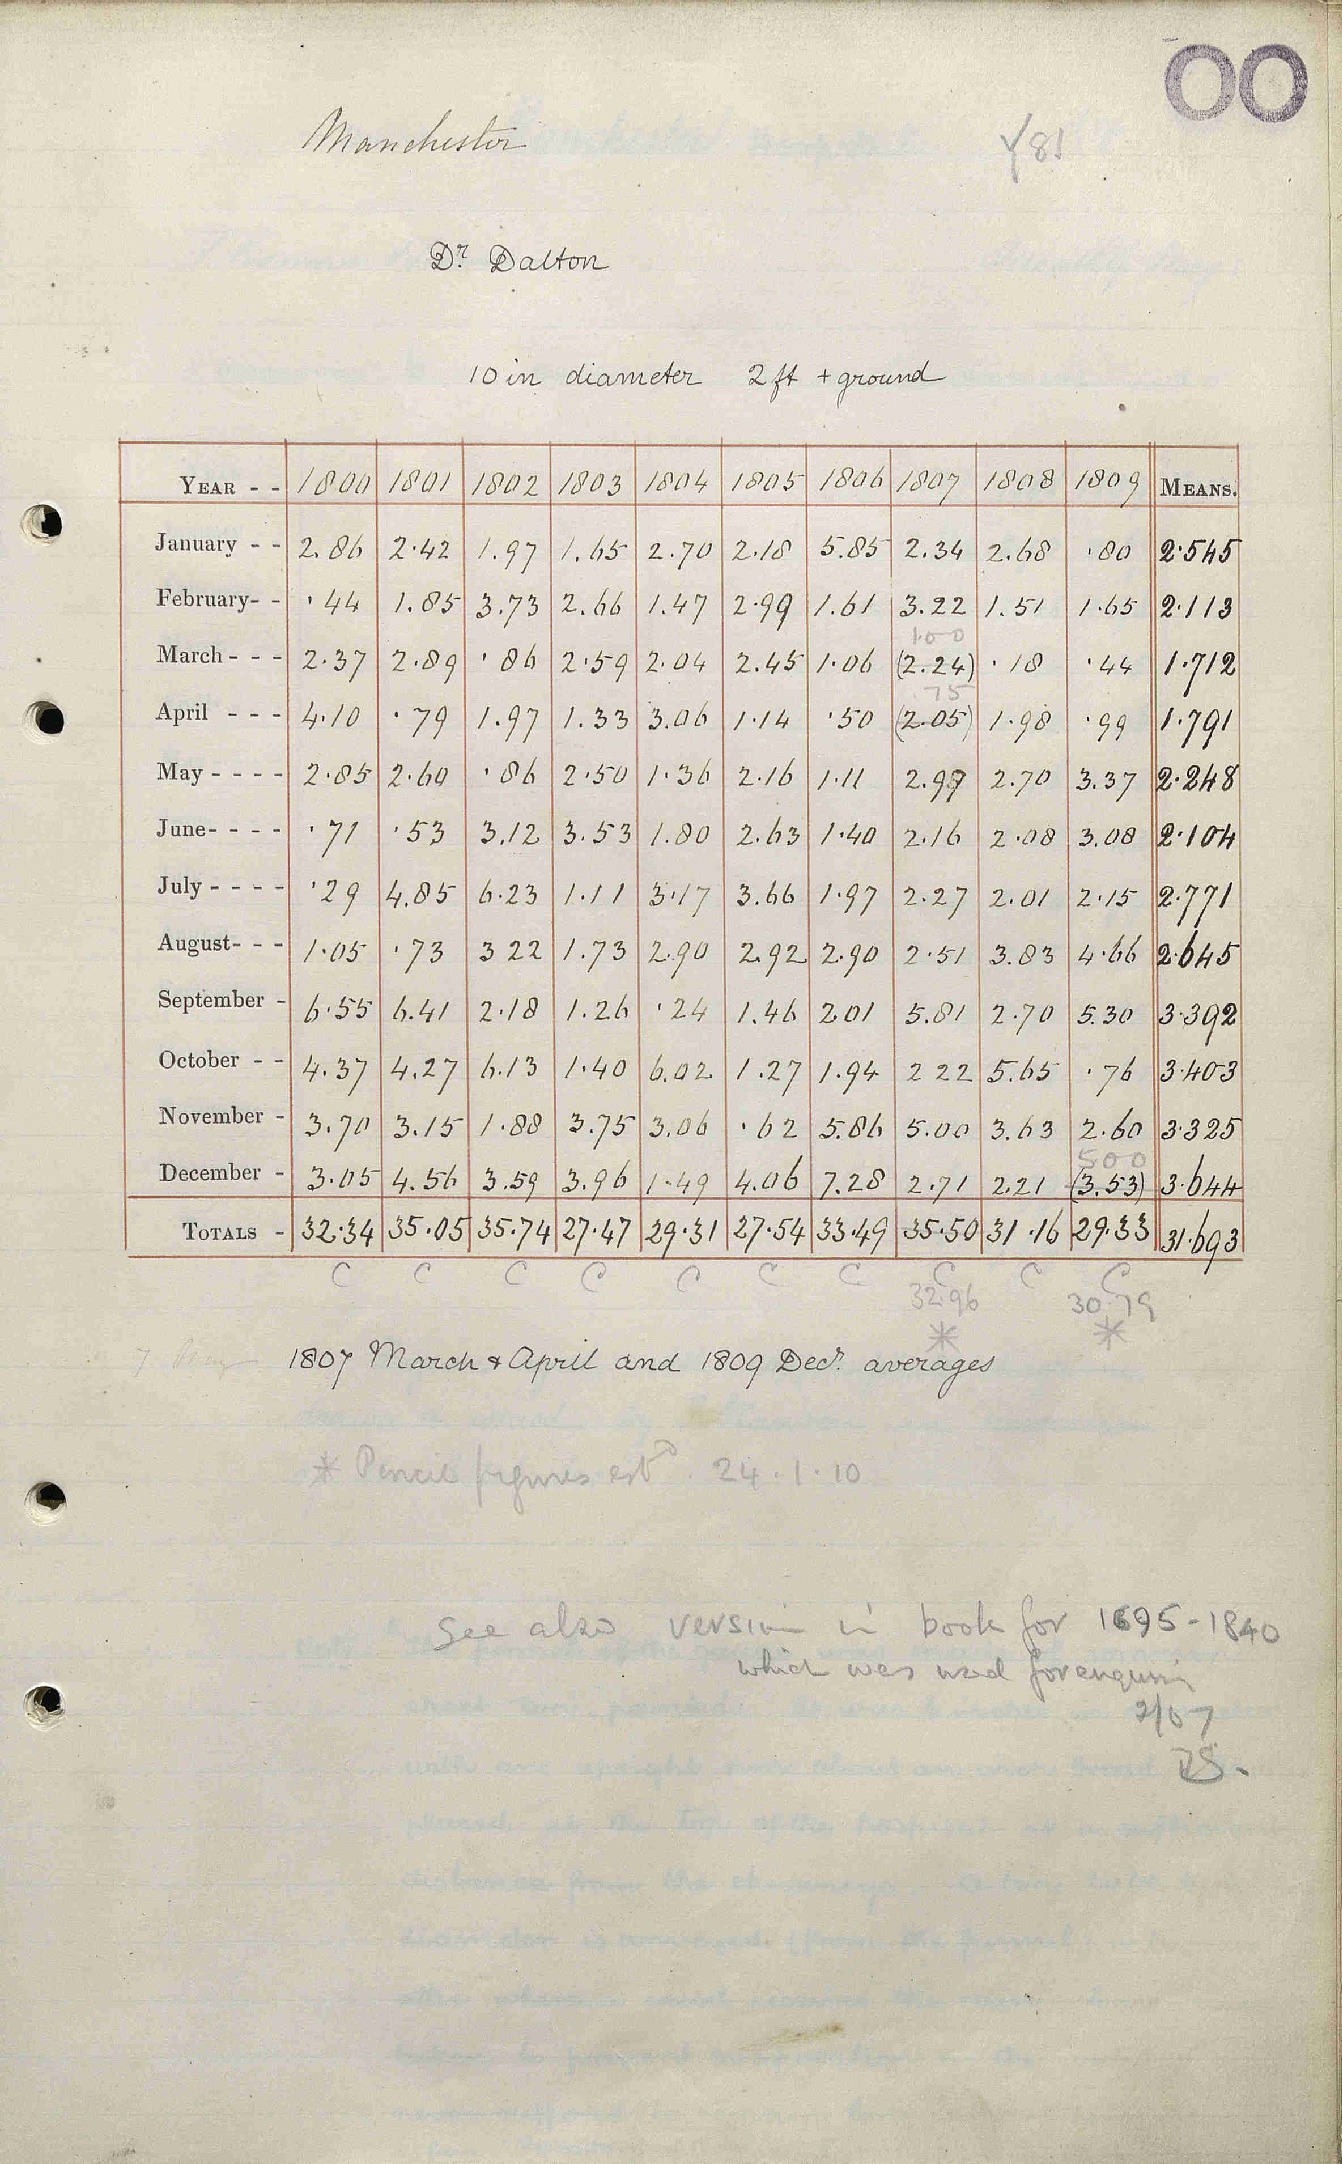 OO
Manchester Y81
Dr. Dalton
10 in diameter 2 ft + ground
YEAR - - 1800 1801 1802 1803 1804 1805 1806 1807 1808 1809 MEANS.
January - - 2.86 2.42 1.97 1.65 2.70 2.18 5.85 2.34 2.68 .80 2.545
February- - .44 1.85 3.73 2.66 1.47 2.99 1.61 3.22 1.51 1.65 2.113
1.00
March - - - 2.37 2.89 .86 2.59 2.04 2.45 1.06 (2.24) .18 .44 1.712
.75
April - - - 4.10 .79 1.97 1.33 3.06 1.14 .50 (2.05) 1.98 .99 1.791
May - - - - 2.85 2.60 .86 2.50 1.36 2.16 1.11 2.97 2.70 3.37 2.248
June- - - - .71 .53 3.12 3.53 1.80 2.63 1.40 2.16 2.08 3.08 2.104
July - - - - .29 4.85 6.23 1.11 3.17 3.66 1.97 2.27 2.01 2.15 2.771
August- - - 1.05 .73 3 22 1.73 2.90 2.92 2.90 2.51 3.83 4.66 2.645
September - 6.55 6.41 2.18 1.26 .24 1.46 2.01 5.81 2.70 5.30 3.392
October - - 4.37 4.27 6.13 1.40 6.02 1.27 1.94 2 22 5.65 .76 3.403
November - 3.70 3.15 1.88 3.75 3.06 .62 5.86 5.00 3.63 2.60 3.325
500
December - 3.05 4.56 3.59 3.96 1.49 4.06 7.28 2.71 2.21 (3.53) 3.644
TOTALS - 32.34 35.05 35.74 27.47 29.31 27.54 33.49 35.50 31.16 29.33 31.693
C C C C C C C C C C
32.96 30.79
* *
1807 March & April and 1809 Decr. averages
* Pencil figures estd. 24.1.10
See also version in book for 1695-1840
which was used for enquiry
2/57